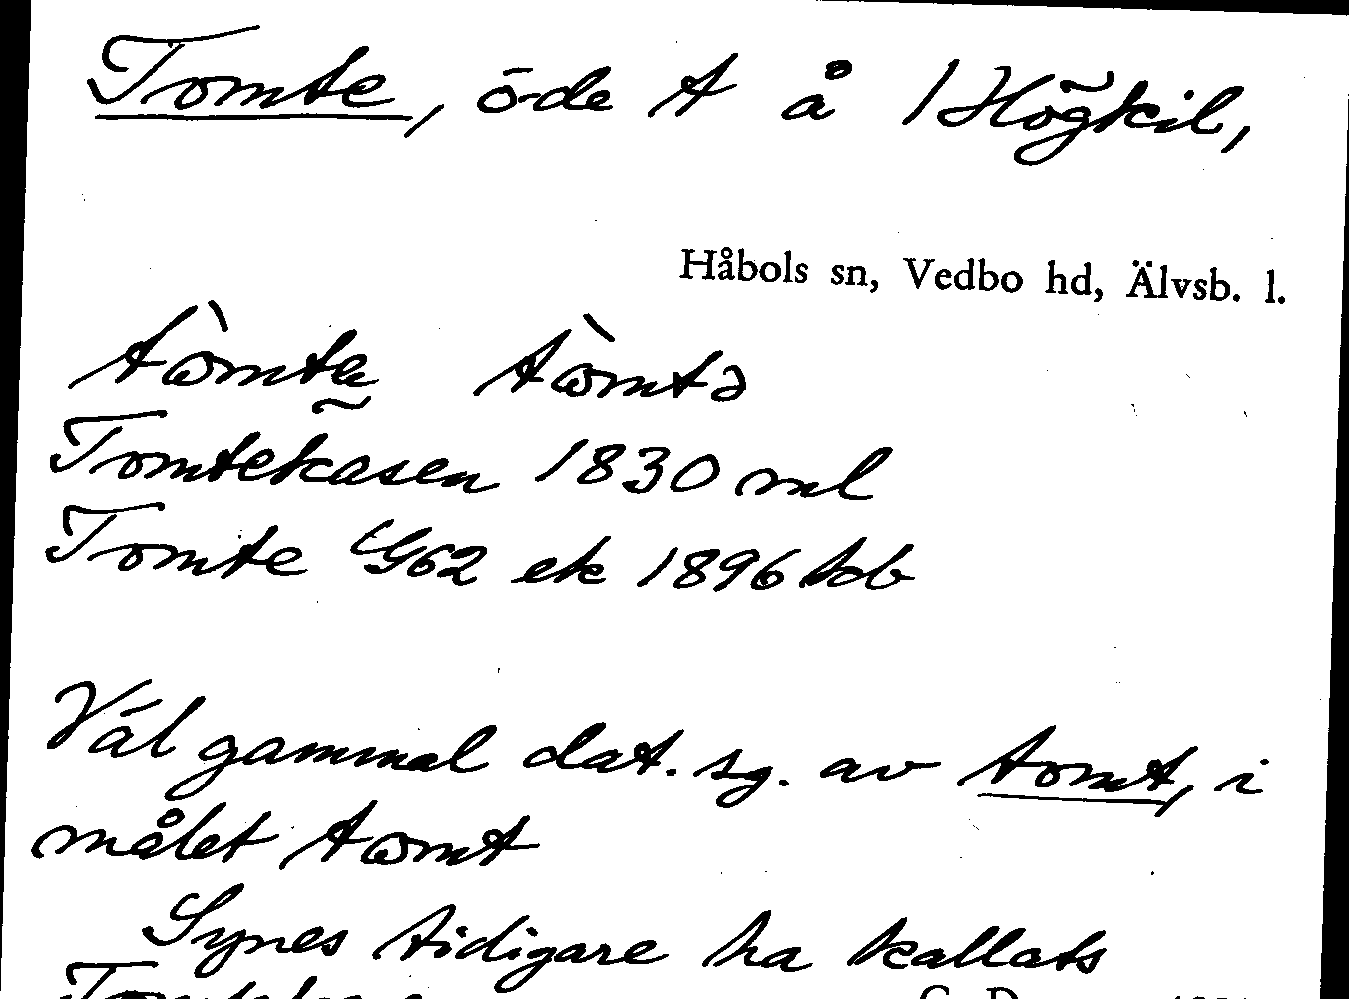 Tomte, öde t å 1 Högkil,
Håbols sn, Vedbo hd, Älvsb. l.
tòmtə
Tomtekasen 1830 ml
Tomte G62 ek 1896 tob
Väl gammal dat. sg. av tomt, i
målet tomt
Synes tidigare ha kallats